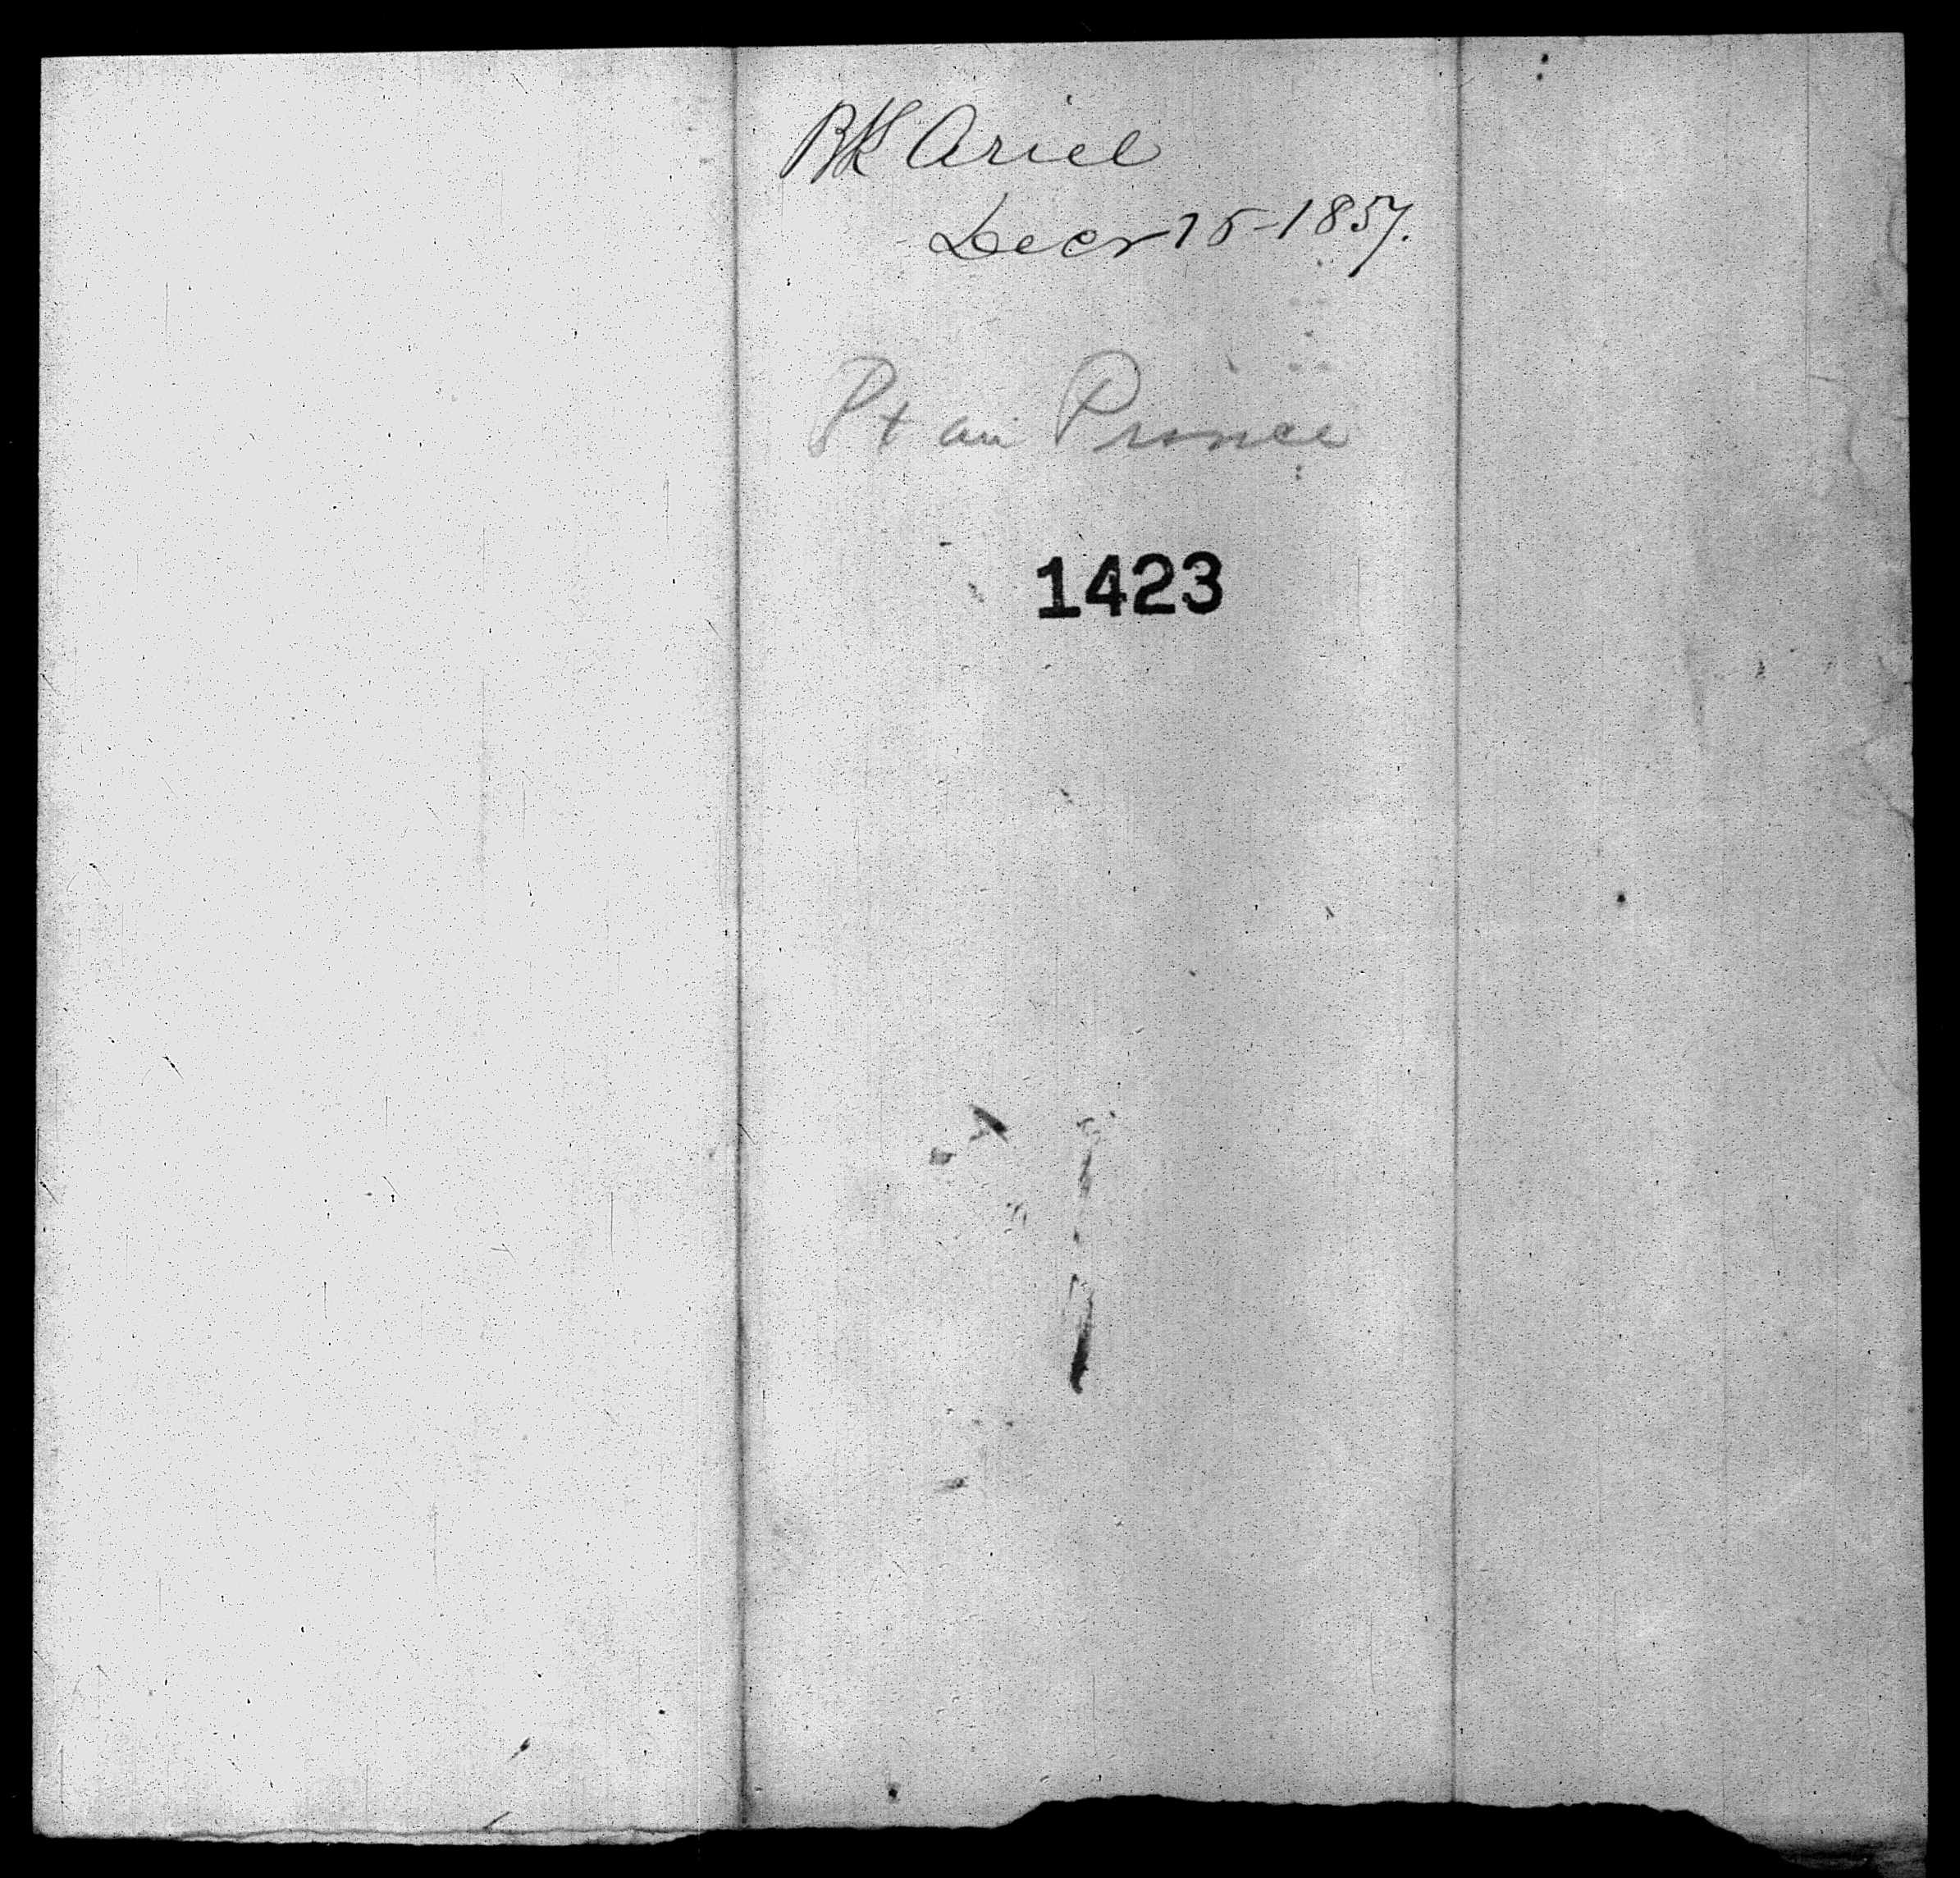 BK Ariel
Decr 15-1857.
Pt au Prince
1423